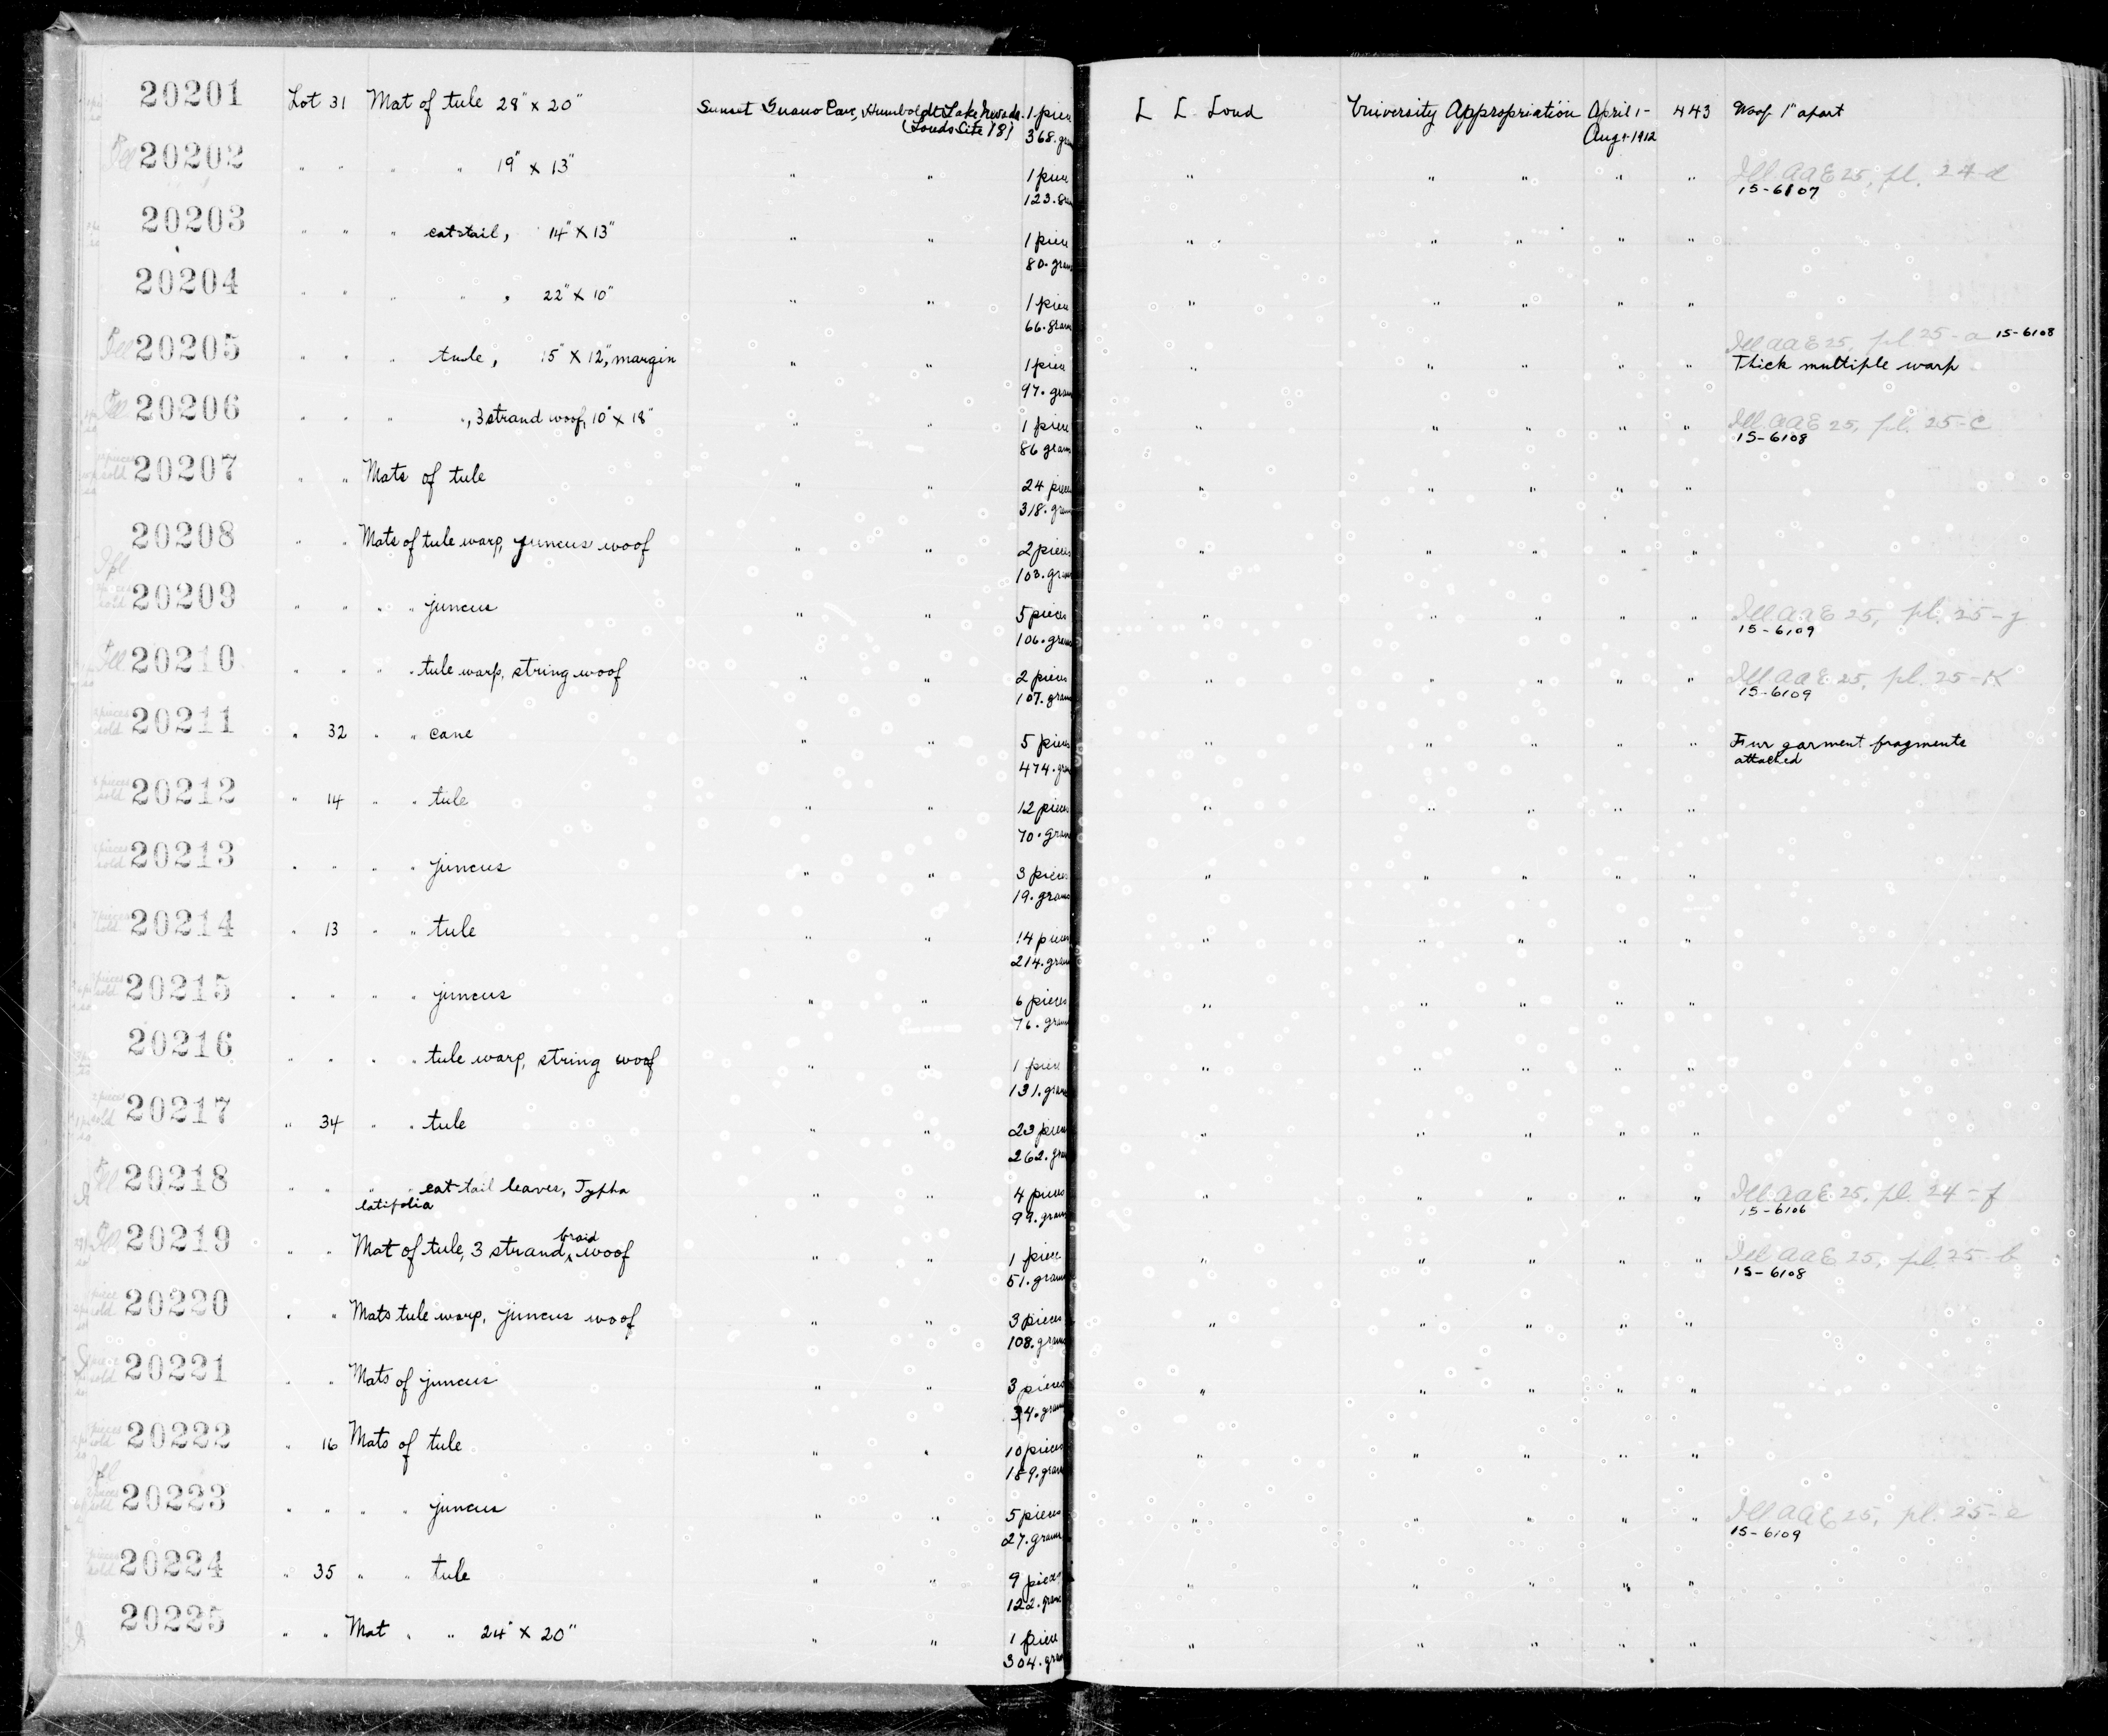 20201 Lot 31 Mat of tule 28" x 20" Sunset Guano Cave, Humboldt Lake Nevada. 1 piece L L Loud University Appropriation April 1- 443 Woof 1" apart
(Louds Site 18) 368. gram Aug 1-1912
20202 " " " " 19" x 13" " " 1 piece " " " " " Ill. AAE 25, pl. 24-d
123. gram 15-6107
20203 " " " cat-tail, 14" x 13" " " 1 piece " " " " "
80. gram
20204 " " " " , 22" x 10" " " 1 piece " " " " "
66. gram
Ill 20205 " " " tule, 15" x 12", margin " " 1 piece " " " " " Ill AAE 25, pl. 25-a 15-6108
97. gram Thick multiple warp
Ill 20206 " " " ", 3 strand woof, 10" x 18" " " 1 piece " " " " " Ill. AAE 25, pl. 25-c
86 gram 15-6108
20207 " " Mats of tule " " 24 pieces " " " " "
318. gram
20208 " " Mats of tule warp, juncus woof " " 2 pieces " " " " "
103. gram
20209 " " " " juncus " " 5 pieces " " " " " Ill AAE 25, pl. 25-g
106. gram 15-6109
Ill 20210 " " " " tule warp, string woof " " 2 pieces " " " " " Ill. AAE 25, pl. 25-K
107. gram 15-6109
20211 " 32 " " cane " " 5 pieces " " " " " Fur garment fragments
474. gram attached
20212 " 14 " " tule " " 12 pieces " " " " "
70. gram
20213 " " " " juncus " " 3 pieces " " " " "
19. grams
20214 " 13 " " tule " " 14 pieces " " " " "
214. gram
20215 " " " " juncus " " 6 pieces " " " " "
76. gram
20216 " " " " tule warp, string woof " " 1 piece " " " " "
131. gram
20217 " 34 " " tule " " 23 pieces " " " " "
262. gram
Ill 20218 " " " " cat-tail leaves, Typha " " 4 pieces " " " " " Ill. AAE 25, pl. 24-f
latifolia 99. gram 15-6106
Ill 20219 " " Mat of tule, 3 strand, braid woof " " 1 piece " " " " " Ill AAE 25, pl. 25-b
51. gram 15-6108
20220 " " Mats tule warp, juncus woof " " 3 pieces " " " " "
108. gram
20221 " " Mats of juncus " " 3 pieces " " " " "
34. gram
20222 " 16 Mats of tule " " 10 pieces " " " " "
189. gram
20223 " " " " juncus " " 5 pieces " " " " " Ill AAE 25, pl. 25-e
27. gram 15-6109
20224 " 35 " " tule " " 9 pieces " " " " "
122. gram
20225 " " Mat " " 24" x 20" " " 1 piece " " " " "
304. gram